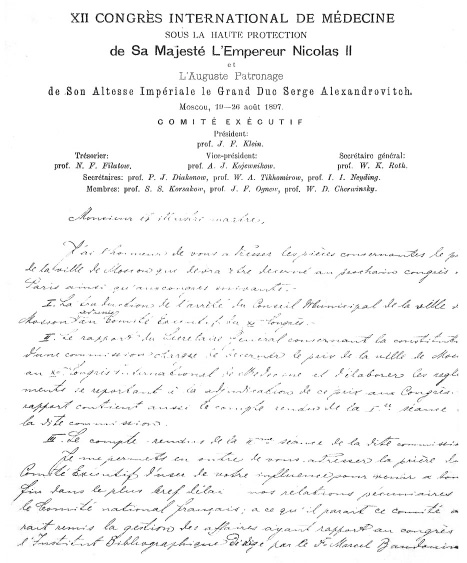 XII CONGRÈS INTERNATIONAL DE MÉDECINE
SOUS LA HAUTE PROTECTION
de Sa Majesté L'Empereur Nicolas II
et
L'Auguste Patronage
de Son Altesse Impériale le Grand Duc Serge Alexandrovitch.
Moscou, 19—26 août 1897.
COMITÉ EXÉCUTIF
Président:
prof. J. F. Klein.
Trésorier: Vice-président: Secrétaire général:
prof. N. F. Filatow. prof. A. J. Kojewnikow. prof. W. K. Roth.
Secrétaires: prof. P. J. Diakonow, prof. W. A. Tikhomirow, prof. I. I. Neyding.
Membres: prof. S. S. Korsakow, prof. J. F. Ognew, prof. W. D. Cherwinsky.
Monsieur et
J'ai l'honneur de vous adresser les pièces concernantes le
de la ville de Moscou que devra être decerné au prochain congrès
Paris ainsi qu'aux congrès suivants.
I. La traduction de l'arrêté du Conseil Municipal de la ville d
Moscou au Comité Executif du Congrès.
II. Le rapport du Secretaire General concernant la
d'une commission de decerner le prix de la ville de
au Congrès international de Medecine et d'élaborer les
ments se reportant à la adjudication de ce prix aux Congrès
rapport contient aussi le compte rendu de la I séance
la dite commission.
III. Le compte-rendu de la II séance de la dite
Je me permets en outre de vous adresser la prière d
Comité Exécutif, d'user de votre influence pour venir a
fin dans le plus bref délai nos relations pecuniaires
le Comité national français; a ce qu'il parait ce comité
rait remis la gestion des affaires ayant rapport au congrès
l'Institut Bibliographique par le Dr Marcel Baudouin